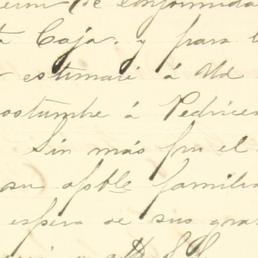 de conformida
Caja, y para l
estimaré á Vd
costumbre á Pedrices
Sin más por el
su apble familia
espera de sus gra